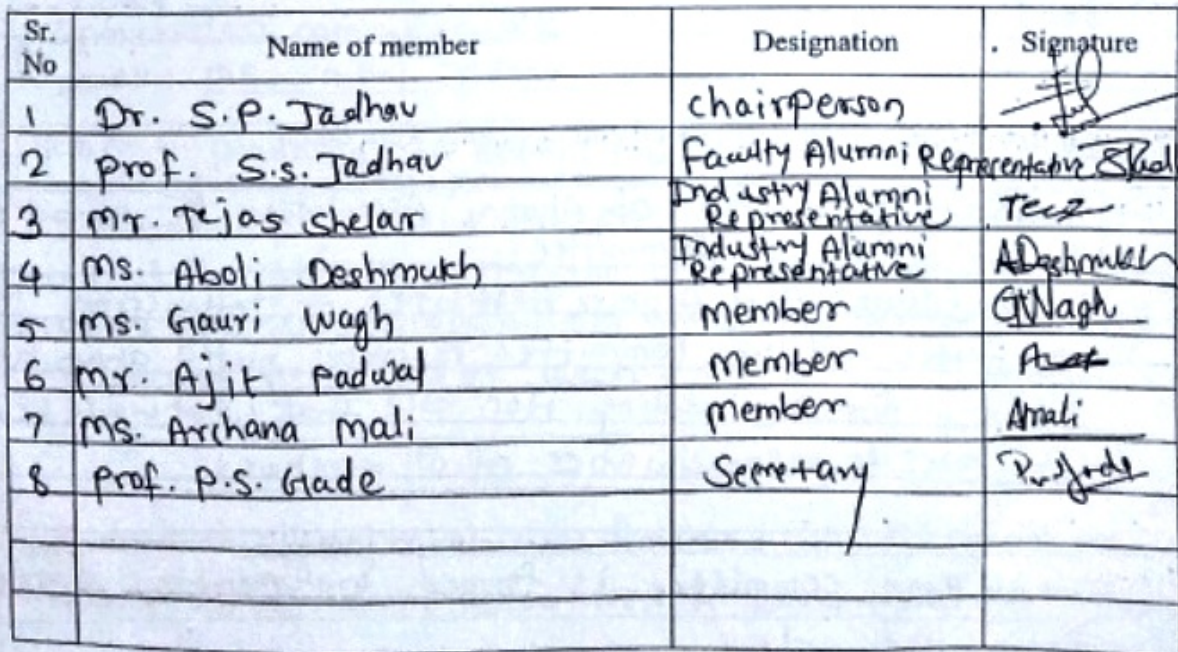 Sr. No Name of member Designation Signature
1 Dr. S.P. Jadhav chairperson
2 Prof. S.s. Jadhav Faculty Alumni Representative
3 Mr. Tejas Shelar Industry Alumni Representative
4 Ms. Aboli Deshmukh Industry Alumni Representative ADeshmukh
5 Ms. Gauri Wagh member GWagh
6 Mr. Ajit Padwal Member
7 Ms. Archana Mali member Amali
8 Prof. P.S. Gade Secretary